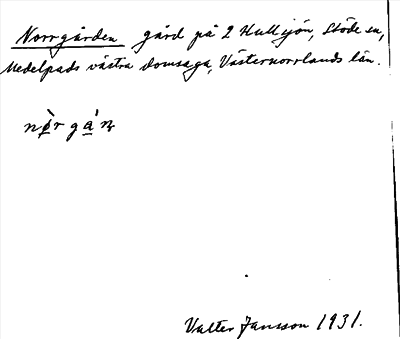 Norrgården gård på 2 Hullsjön, Stöde sn,
Medelpads västra domsaga, Västernorrlands län.
nø̀r gá̱ n̥
Valter Jansson 1931.